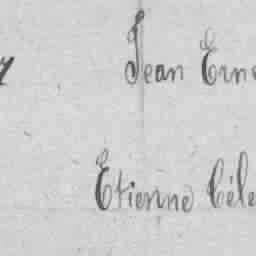 Jean Erne
Etienne Céle